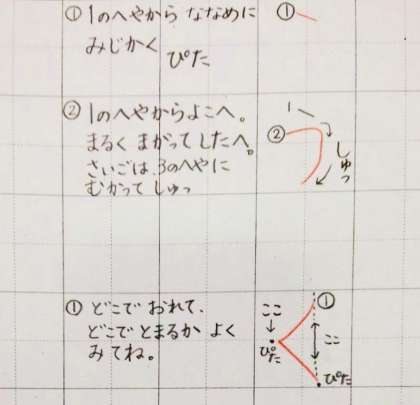 ①1のへやから ななめに
みじかく ぴた
①
②1のへやからよこへ。
まるく まがって したへ。
さいごは、3のへやに
むかって しゅっ
1
②
しゅっ
①どこで おれて、
どこで とまるか よく
みてね。
ここ
①
ここ
ぴた
ぴた